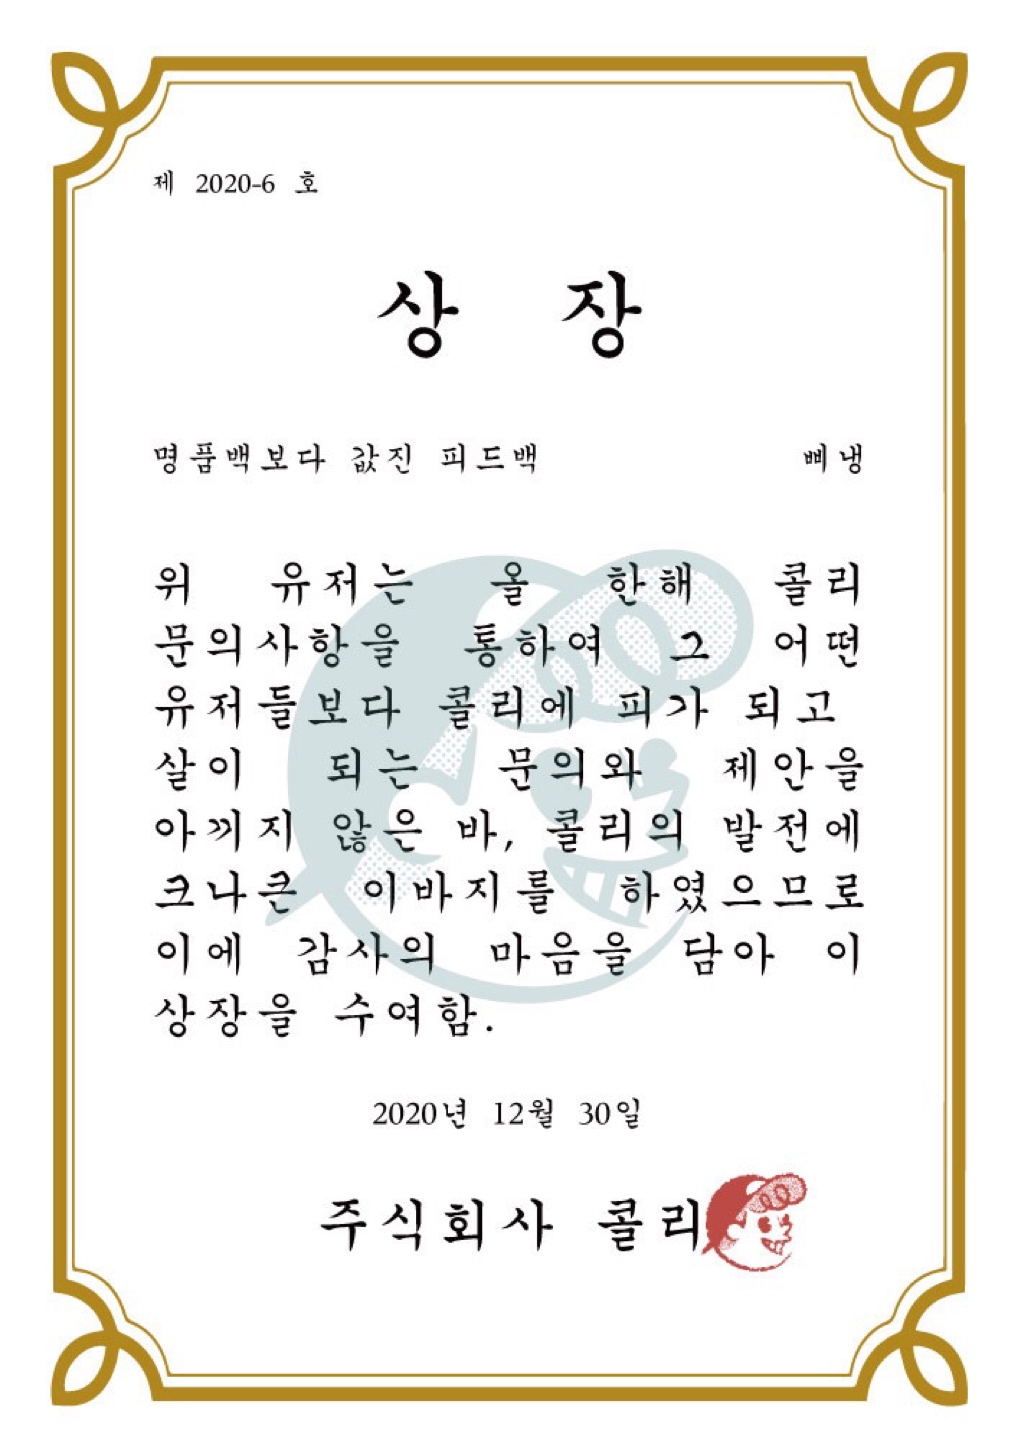 제 2020-6 호
상 장
명품백보다 값진 피드백 삐냉
위 유저는 올 한해 콜리
문의사항을 통하여 그 어떤
유저들보다 콜리에 피가 되고
살이 되는 문의와 제안을
아끼지 않은 바, 콜리의 발전에
크나큰 이바지를 하였으므로
이에 감사의 마음을 담아 이
상장을 수여함.
2020년 12월 30일
주식회사 콜리